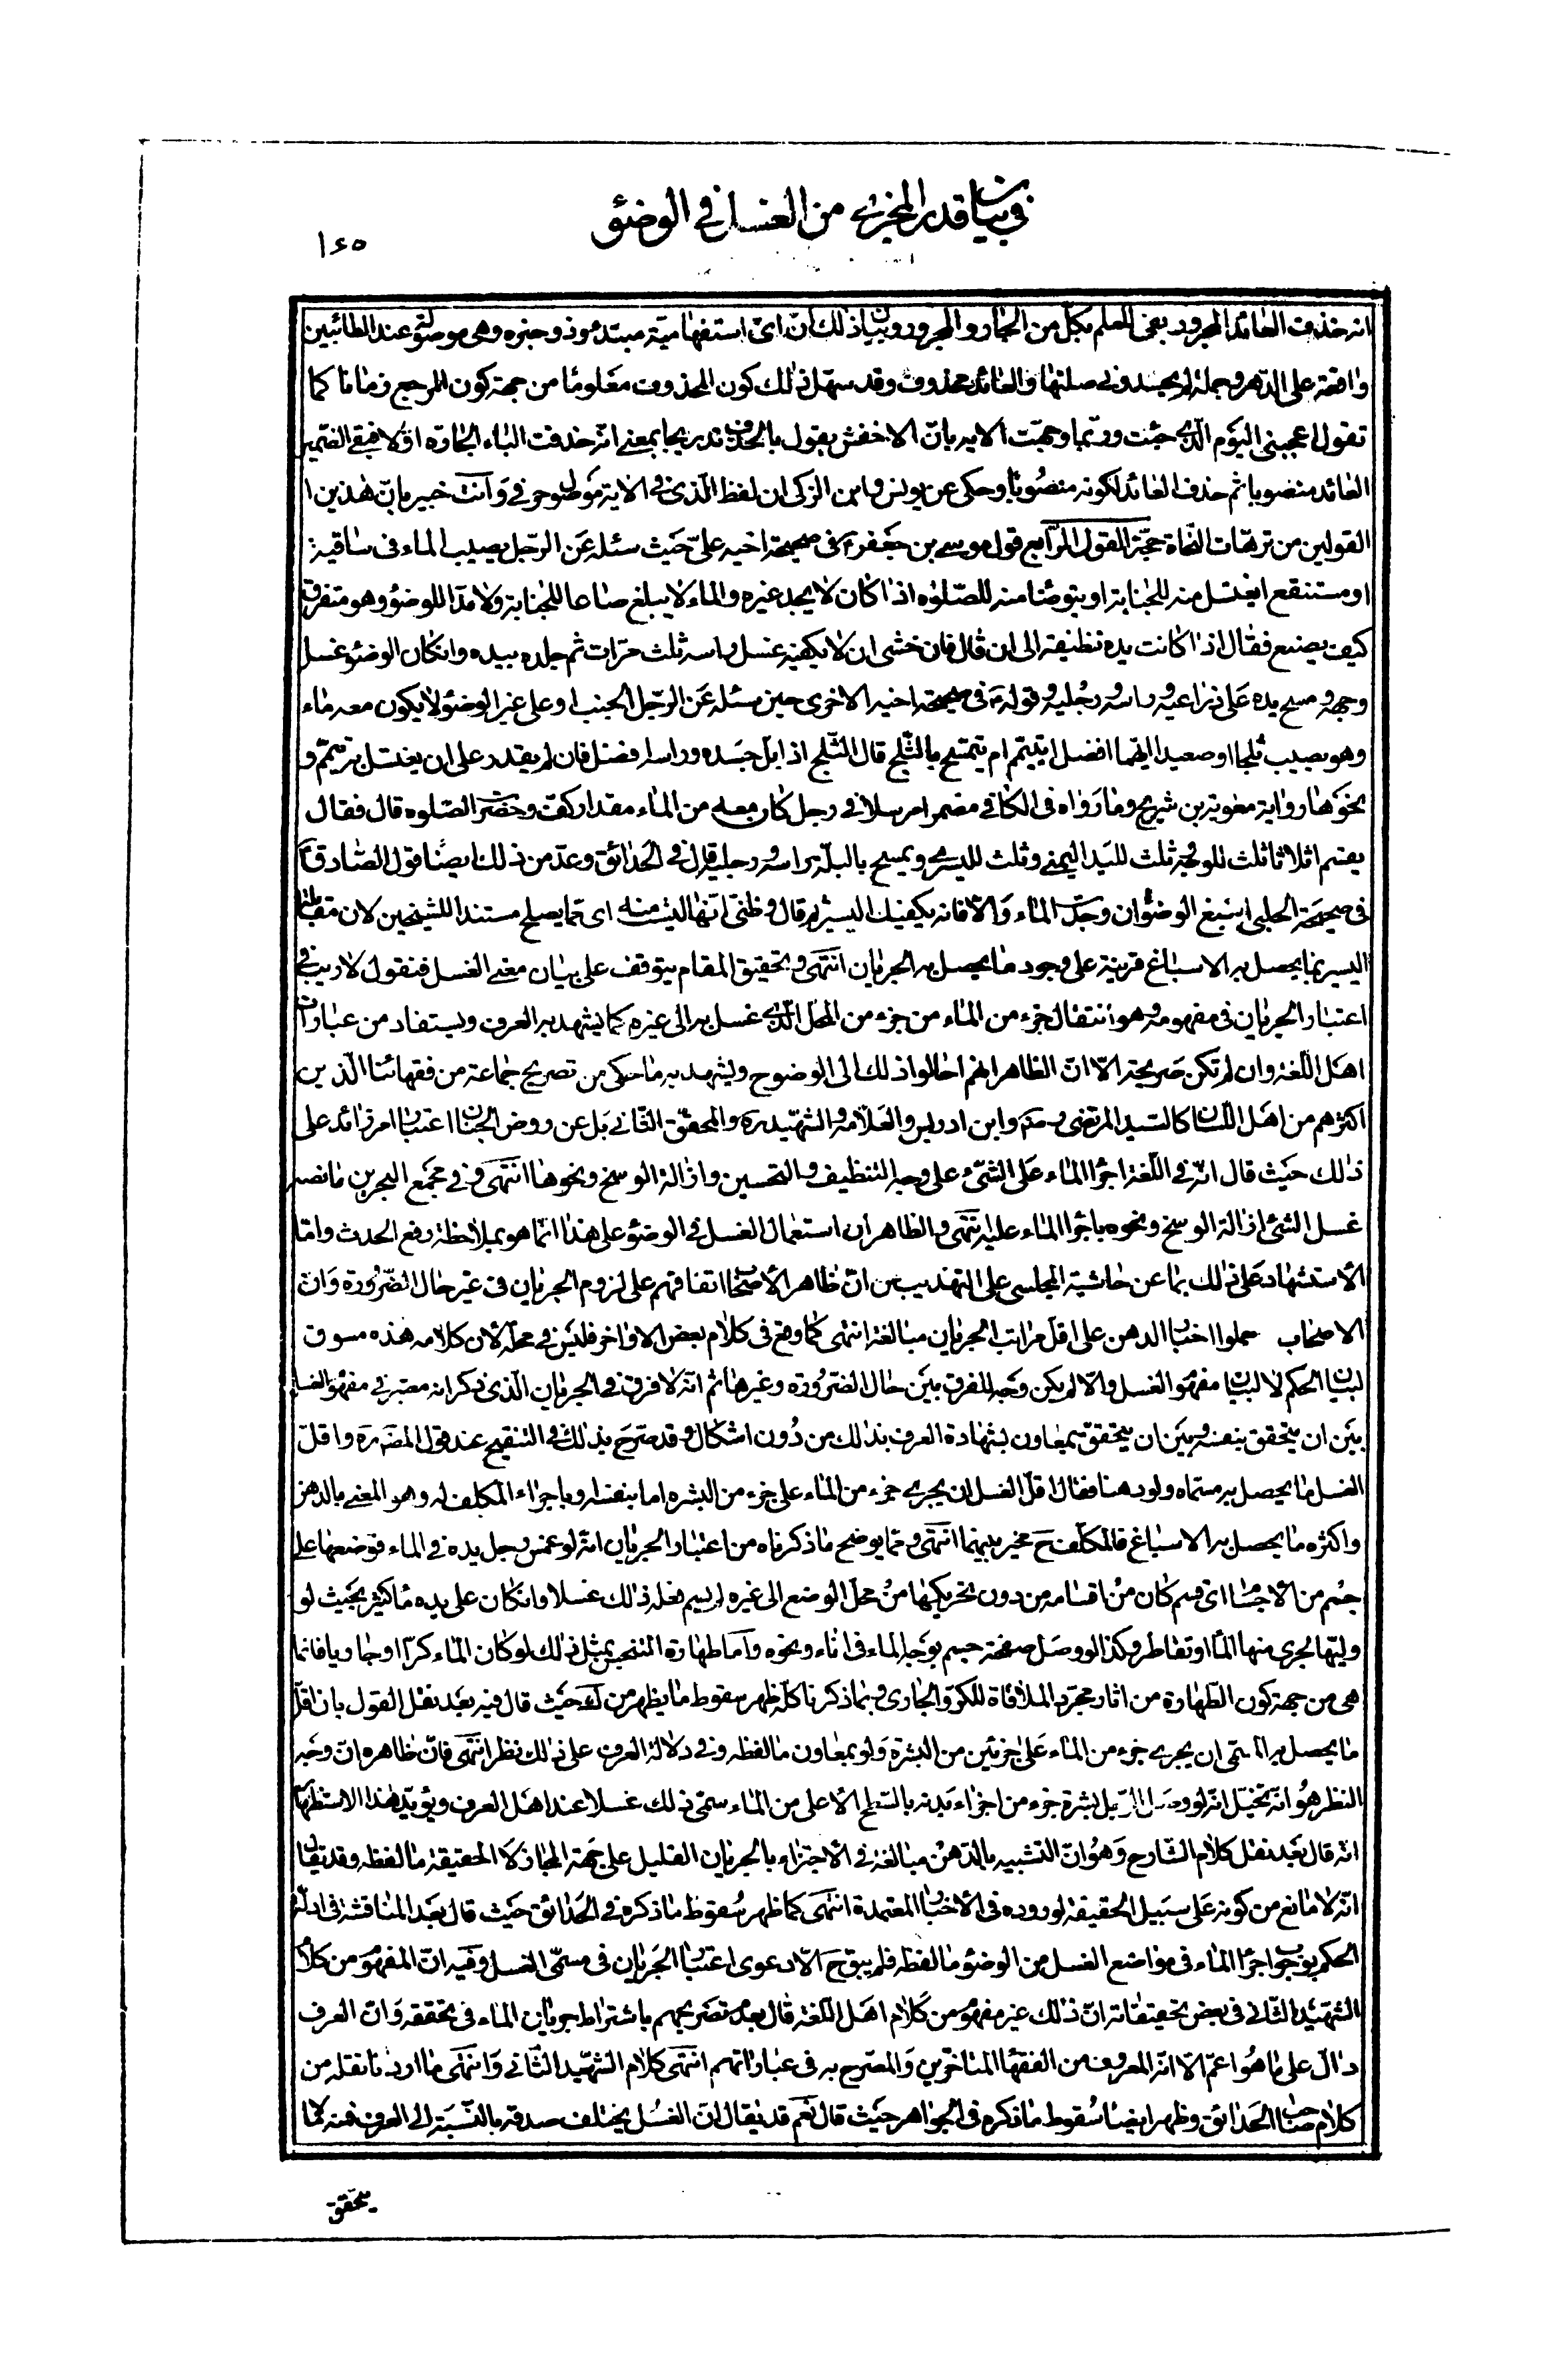 في بيان قدر المجزى من الغسل في الوضوء
١٤٥
انه حذف العائد المجرور بفى للعلم بكل من الجار والمجرور وبيان ذلك ان اى استفهامية مبتدء وذو خبره وهى موصولة عند الطائيين
واقعة على الدهر وجملة لم يحسدونى صلتها والعائد محذوف وقد سهل ذلك كون المحذوف معلوما من جهة كون المرجع زمانا كما
تقول اعجبنى اليوم الذى جئت وربما وجهت الاية بان الاخفش يقول بالحذف تدريجا بمعنى انه حذفت الباء الجارة اولا فبقى الضمير
العائد منصوبا ثم حذف العائد لكونه منصوبا وحكى عن يونس و ان لفظ الذى فى الاية موصول حرفي وانت خبير بان هذين
القولين من ترهات النحاة حجة القول الرابع قول موسى بن جعفر ع فى صحيحة اخيه على حيث سئله عن الرجل يصيب الماء فى ساقية
او مستنقع ايغتسل منه للجنابة او يتوضأ منه للصلوة اذا كان لا يجد غيره والماء لا يبلغ صاعا للجنابة ولا مدا للوضوء وهو متفرق
كيف يصنع فقال اذا كانت يده نظيفة الى ان قال فان خشى ان لا يكفيه غسل راسه ثلث مرات ثم جلده بيده وان كان الوضوء غسل
وجهه ومسح يده على ذراعيه وراسه ورجليه وقوله ع فى صحيحة اخيه الاخرى حين سئله عن الرجل الجنب او على غير الوضوء لا يكون معه ماء
وهو يصيب ثلجا او صعيدا ايهما افضل ايتيمم ام يتمسح بالثلج قال الثلج اذا بل جسده وراسه افضل فان لم يقدر على ان يغتسل به تيمم و
نحوها رواية معوية بن شريح وما رواه فى الكافي مضمرا مرسلا في رجل كان معه من الماء مقدار كف وحضرت الصلوه قال فقال
يقسم اثلاثا ثلث للوجه ثلث لليد اليمنى وثلث لليسرى ويمسح بالبلة راسه ورجليه قال فى الحدائق وعد من ذلك ايضا قول الصادق ع
فى صحيحة الحلبى اسبغ الوضوء ان وجدت الماء والا فانه يكفيك اليسير ثم قال وظنى انها ليست منه اى مما يصلح مستندا للشيخين لان مقابلة
اليسير بما يحصل به الاسباغ قرينة على وجود ما يحصل به الجريان انتهى وتحقيق المقام يتوقف على بيان معنى الغسل فنقول لا ريب فى
اعتبار الجريان فى مفهومه وهو انتقال جزء من الماء من جزء من المحل الذى غسل به الى غيره كما يشهد به العرف ويستفاد من عبارات
اهل اللغة وان لم تكن صريحة الا ان الظاهر انهم احالوا ذلك الى الوضوح ويشهد به ما حكى من تصريح جماعة من فقهائنا الذين
اكثرهم من اهل اللسان كالسيد المرتضى وابن ادريس والعلامة والشهيد ره والمحقق الثانى بل عن روض الجنان اعتبار امر زائد على
ذلك حيث قال انه فى اللغة اجراء الماء على الشىء على وجه التنظيف والتحسين وازالة الوسخ ونحوها انتهى وفى مجمع البحرين ما نصه
غسل الشئ ازالة الوسخ ونحوه باجراء الماء عليه انتهى والظاهر ان استعمال الغسل فى الوضوء على هذا انما هو بملاحظة رفع الحدث واما
الاستشهاد على ذلك بما عن حاشية المجلسى على التهذيب من ان ظاهر الاصحاب اتفاقهم على لزوم الجريان فى غير حال الضرورة وان
الاصحاب حملوا اخبار الدهن على اقل مراتب الجريان مبالغة انتهى كما وقع فى كلام بعض الاواخر فليس فى محله لان كلامه هذه مسوق
لبيان الحكم لا لبيان مفهوم الغسل والا لم يكن وجه للفرق بين حال الضرورة وغيرها ثم انه لا فرق فى الجريان الذى ذكر انه معتبر فى مفهوم الغسل
بين ان يتحقق بنفسه وبين ان يتحقق بمعاون بشهادة العرف بذلك من دون اشكال وقد صرح بذلك فى التنقيح عند قول المصنف ره واقل
الغسل ما يحصل به مسماه ولو دهنا فقال اقل الغسل ان يجرى جزء من الماء على جزء من البشرة اما بنفسه او باجراء المكلف له وهو المعنى بالدهن
واكثره ما يحصل به الاسباغ فالمكلف ح مخير بينهما انتهى ومما يوضح ما ذكرناه من اعتبار الجريان انه لو غمس رجل يده فى الماء فوضعها على
جسم من الاجسام اى قسم كان من اقسامه من دون تحريكها من محل الوضع الى غيره لم يسم فعله ذلك غسلا وان كان على يده ماء كثير بحيث لو
وليها لجرى منها الماء او تقاطر وكذا لو وصل صفحة جسم بوجه الماء فى اناء ونحوه واما طهارة المتنجس بمثل ذلك لو كان الماء كرا او جاريا فانما
هى من جهة كون الطهارة من اثار مجرد الملاقاة للكر والجارى وبما ذكرنا كله ظهر سقوط ما يظهر من ك حيث قال فيه بعد نقل القول بان اقل
ما يحصل به المسمى ان يجرى جزء من الماء على جزئين من البشرة ولو بمعاون ما لفظه وفى دلالة العرف على ذلك نظر انتهى فان ظاهره ان وجه
النظر هو انه تخيل انه لو وصل الرجل بشرة جزء من اجزاء بدنه بالسطح الاعلى من الماء سمى ذلك غسلا عند اهل العرف ويؤيد هذا الاستظهار
انه قال بعد نقل كلام الشارح وهو ان التشبيه بالدهن مبالغة فى الاجتزاء بالجريان القليل على جهة المجاز لا الحقيقة ما لفظه وقد يقال
انه لا مانع من كونه على سبيل الحقيقة لوروده فى الاخبار المعتمدة انتهى كما ظهر سقوط ما ذكره فى الحدائق حيث قال بعد المناقشة فى ادلة
الحكم بوجوب اجراء الماء فى مواضع الغسل من الوضوء ما لفظه فلم يبق ح الا دعوى اعتبار الجريان فى مسمى الغسل وفيه ان المفهوم من كلام
الشهيد الثانى فى بعض تحقيقاته ان ذلك غير مفهوم من كلام اهل اللغة قال بعدم تصريحهم باشتراط جريان الماء فى تحققه وان العرف
دال على ما هو اعم الا انه المعروف من الفقهاء المتاخرين والمصرح به فى عباراتهم انتهى كلام الشهيد الثانى وانتهى ما اردنا نقله من
كلام صاحب الحدائق وظهر ايضا سقوط ما ذكره فى الجواهر حيث قال نعم قد يقال ان الغسل يختلف صدقه بالنسبة الى العرف فمنه لما
يتحقق